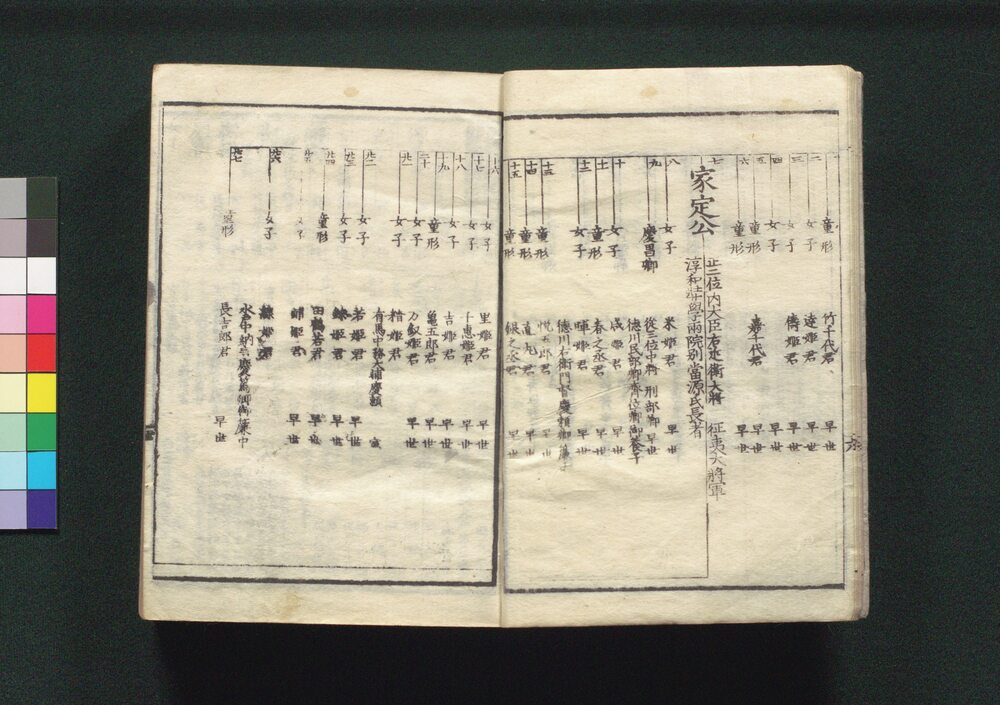 童形 竹千代君 早世
二 女子 達姫君 早世
三 女子 儔姫君 早世
四 女子
五 童形 嘉千代君 早世
六 童形 早世
七 家定公 正二位内大臣右近衛大将 征夷大將軍
淳和奘學兩院別當源氏長者
八 女子 米姫君 早世
九 慶昌卿 從三位中将 刑部卿 早世
德川民部卿齊位卿御養子
十 女子 咸姫君 早世
十一 童形 春之丞君 早世
十二 女子 暉姫君 早世
德川右衛門督慶頼卿簾中
十三 童形 悦五郎君 早世
十四 童形 直丸君 早世
十五 童形 銀之丞君 早世
十六 女子 里姫君 早世
十七 女子 千惠姫君 早世
十八 女子 吉姫君 早世
十九 童形 亀五郎君 早世
二十 女子 万釵姫君 早世
廿一 女子 精姫君
有馬中務大輔慶頼 室
廿二 女子 若姫君 早世
廿三 女子 姫君 早世
廿四 童形 田鶴若君 早世
女子 姫君 早世
廿六 女子 線姫君
水戸中納言慶篤卿御簾中
廿七 童形 長吉郎君 早世